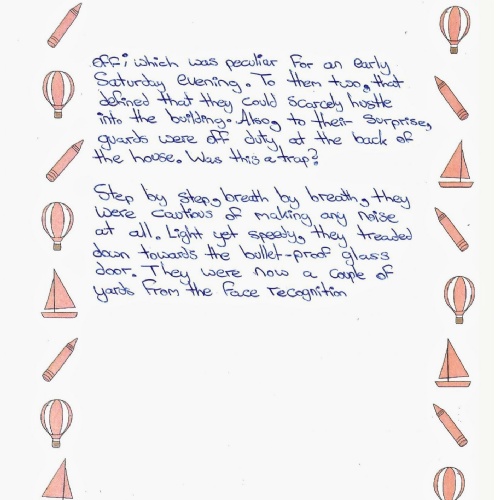 off; which was peculiar for an early
Saturday evening. To them two, that
defined that they could scarcely hustle
into the building. Also, to their surprise,
guards were off duty, at the back of
the house. Was this a trap?
Step by step, breath by breath, they
were cautious of making any noise
at all. Light yet speedy, they treaded
down towards the bullet-proof glass
door. They were now a couple of
yards from the face recognition